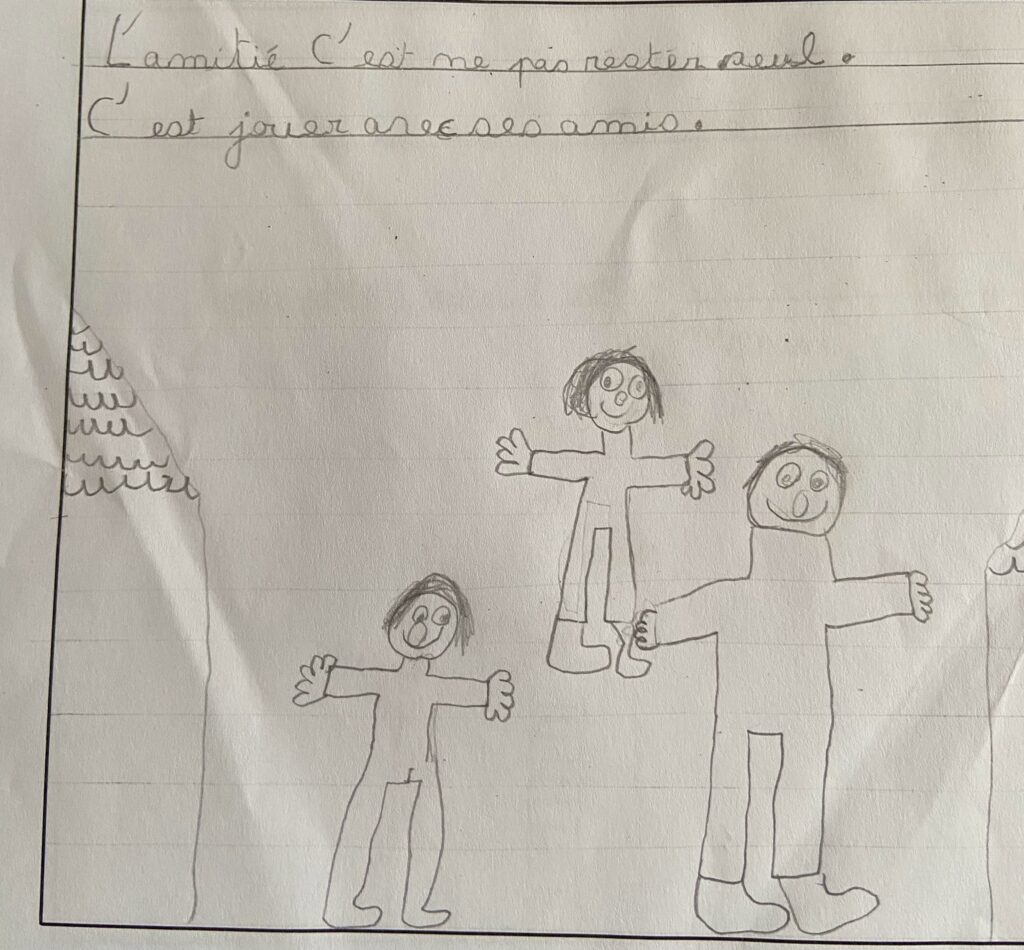 L'amitié C'est ne pas rester seul.
C'est jouer avec ses amis.